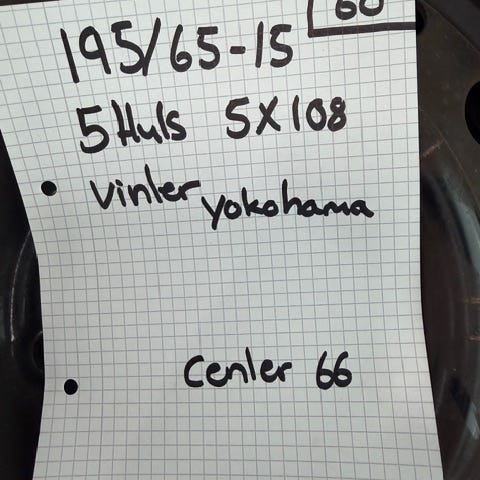 60
195/65-15
5 Huls 5X108
Vinter Yokohama
Center 66